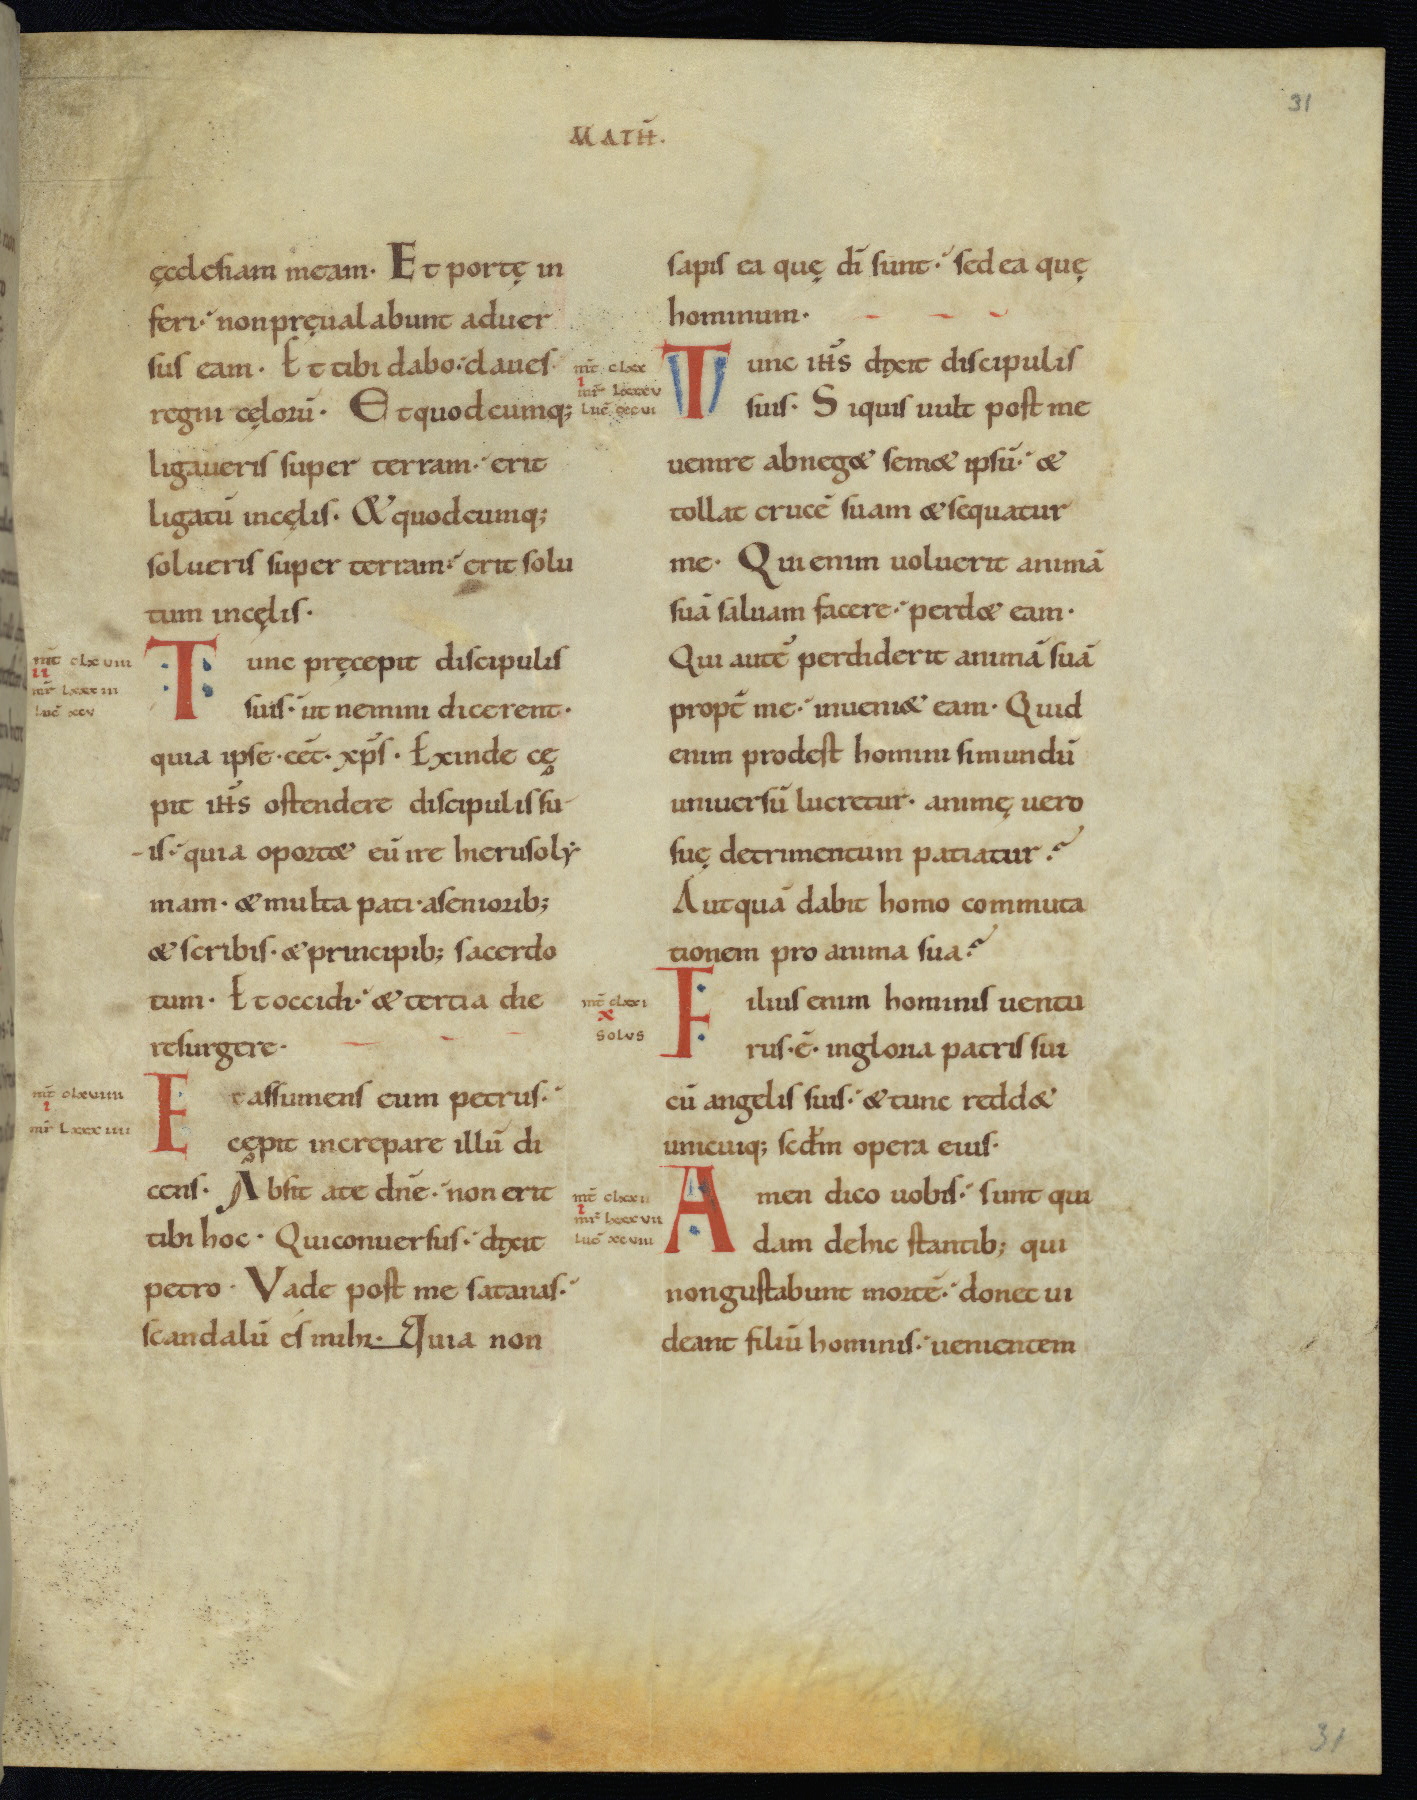 31
MATH̄.
ęcclesiam meam. Et portę in
feri. non pręualabunt aduer
sus eam. Et tibi dabo. claues
regni cęlorū. Et quodcumq;
ligaueris super terram. erit
ligatū in cęlis. & quodcumq;
solueris super terram. erit solu
tum in cęlis.
mt̄ clxviii
ii
mr̄ lxxxiii
luc̄ xcv
Tunc pręcepit discipulis
suis. ut nemini dicerent.
quia ipse. eēt. xp̄s. Exinde cę
pit ih̄s ostendere discipulis su
-is. quia oport& eū ire hierusoly
mam. & multa pati. aseniorib;
& scribis. & principib; sacerdo
tum. Et occidi. & tertia die
resurgere.
mt̄ clxviiii
i
mr̄ lxxxiiii
Et assumens eum petrus.
cępit increpare illū di
cens. Absit a te dn̄e. non erit
tibi hoc. Qui conuersus. dixit
petro. Vade post me satanas.
scandalū es mihi. Quia non
sapis ea quę dī sunt. sed ea quę
hominum.
mt̄ clxx
i
mr̄ lxxxv
luc̄ xcvi
Tunc ih̄s dixit discipulis
suis. Si quis uult post me
uenire abneg& sem& ipsū. &
tollat crucē suam & sequatur
me. Qui enim uoluerit animā
suā saluam facere. perd& eam.
Qui autē perdiderit animā suā
propt̄ me. inueni& eam. Quid
enim prodest homini si mundū
uniuersū lucretur. animę uero
suę detrimentum patiatur?
Aut quā dabit homo commuta
tionem pro anima sua?
mt̄ clxxi
x
solus
Filius enim hominis uentu
rus. ē. in gloria patris sui
cū angelis suis. & tunc redd&
unicuiq; secd̄m opera eius.
mt̄ clxxii
i
mr̄ lxxxvii
luc̄ xcviii
Amen dico uobis. sunt qui
dam de hic stantib; qui
non gustabunt mortē. donec ui
deant filiū hominis. uenientem
31